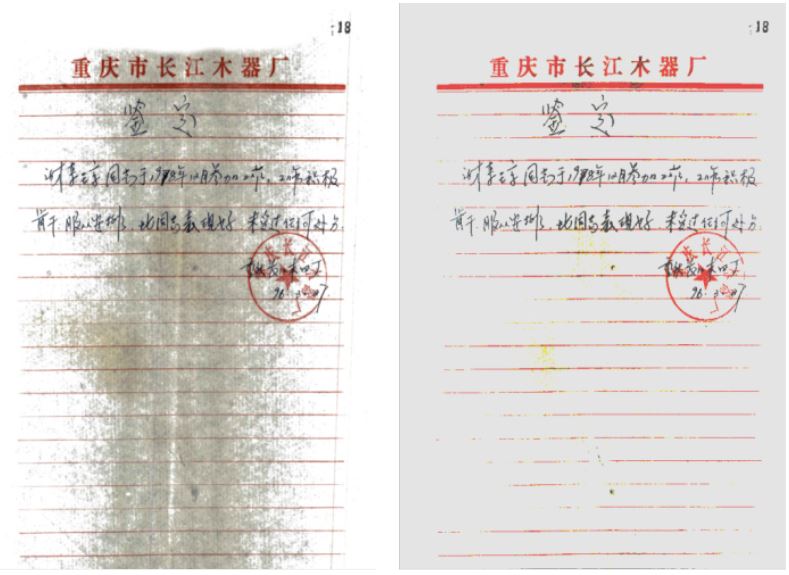 18
重庆市长江木器厂
鉴定
同志于19年12月参加工作,工作积极
肯干,服从安排,此同志表现好,未受过任何处分.
长江
厂
96.
18
重庆市长江木器厂
鉴定
同志于19年12月参加工作,工作积极
肯干,服从安排,此同志表现好,未受过任何处分.
长江
厂
96.